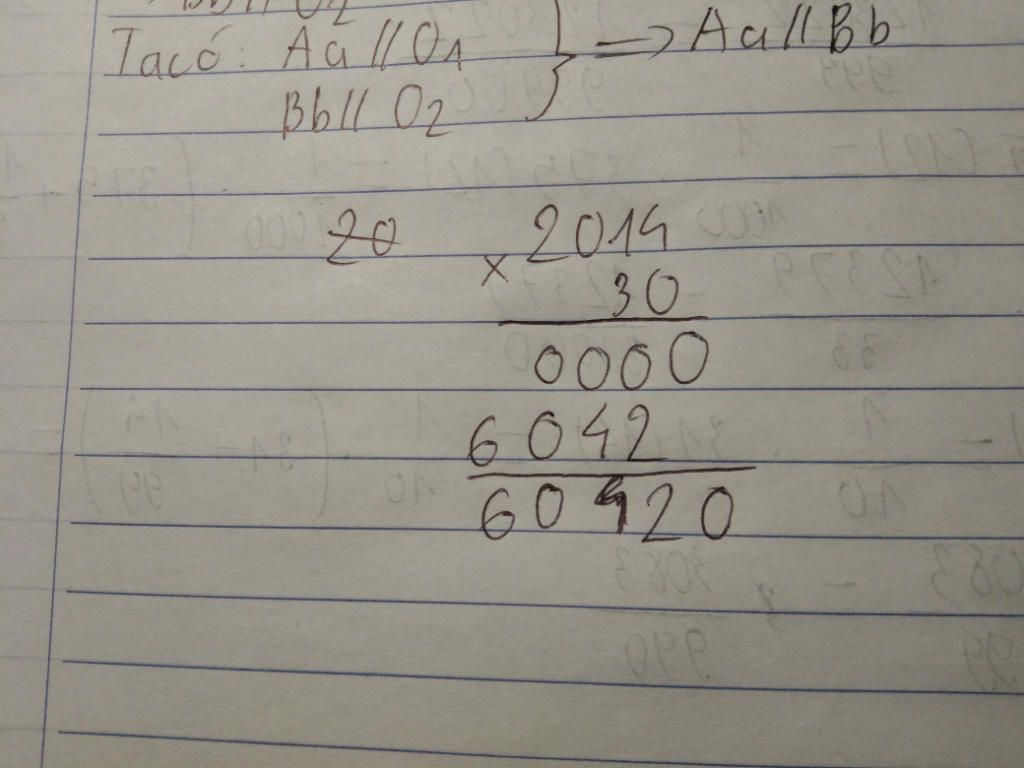 Bb // O2
Ta có: Aa // O1
Bb // O2
} => Aa // Bb
20
2014
x 30
0000
6042
60420